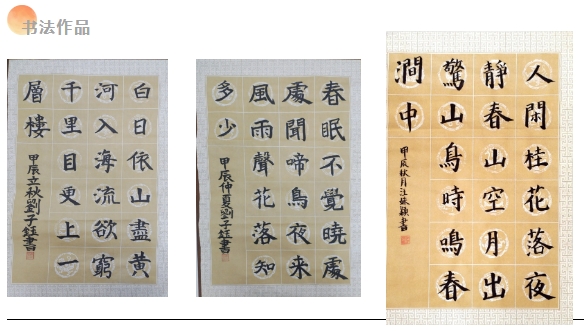 书法作品
白日依山盡黃
河入海流欲窮
千里目更上一
層樓
甲辰立秋劉子鈺書
春眠不覺曉處
處聞啼鳥夜来
風雨聲花落知
多少
甲辰仲夏劉子鈺書
人閑桂花落夜
靜春山空月出
驚山鳥時鳴春
澗中
甲辰秋月汪穎書